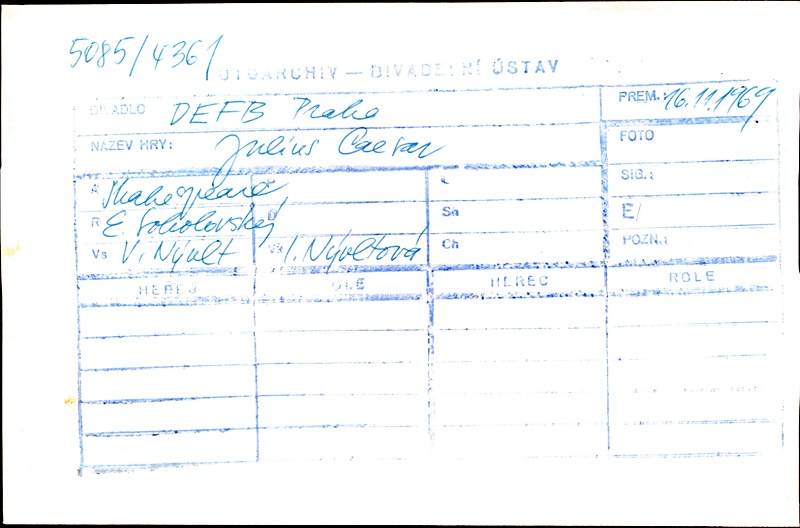 5085/4361
FOTOARCHIV — DIVADELNÍ ÚSTAV
DIVADLO DEFB Praha PREM.: 16.11.1969
NÁZEV HRY: Julius Caesar FOTO
A Shakespeare L SIG.:
R E. Sokolovský D Sa Č/
Vs V. Nývlt Vk I. Nývltová Ch POZN.:
HEREC ROLE HEREC ROLE